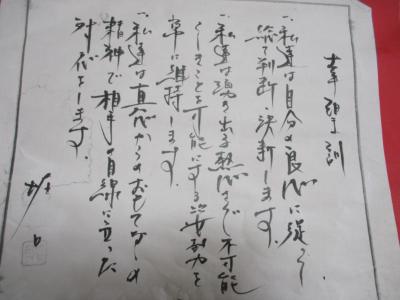 一、私達は自分の良心に従い
総て判断・決断します。
一、私達は湧き出る熱心さで不可能
らしきことを可能にする努力を
に維持します。
一、私達は真心からのおもてなしの
精神で相手の目線に立った
対応をします。